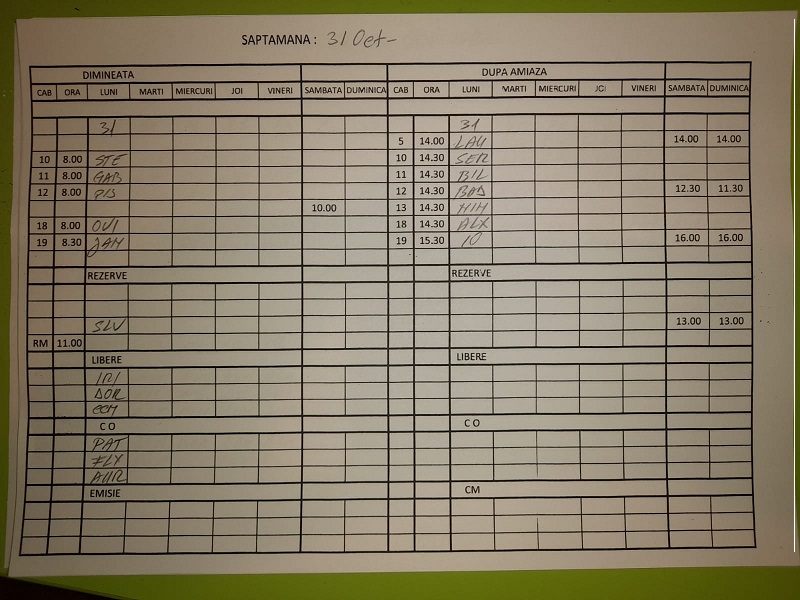 SAPTAMANA : 31 Oct-
DIMINEATA DUPA AMIAZA
CAB ORA LUNI MARTI MIERCURI JOI VINERI SAMBATA DUMINICA CAB ORA LUNI MARTI MIERCURI JOI VINERI SAMBATA DUMINICA
31 31
5 14.00 LAU 14.00 14.00
10 8.00 STE 10 14.30 SER
11 8.00 GAB 11 14.30 BIL
12 8.00 12 14.30 BOD 12.30 11.30
10.00 13 14.30 MIH
18 8.00 OVI 18 14.30 ALX
19 8.30 JAN 19 15.30 IO 16.00 16.00
REZERVE REZERVE
SLV 13.00 13.00
RM 11.00
LIBERE LIBERE
IRI
DOR
C O C O
PAT
FLY
AUR
EMISIE CM